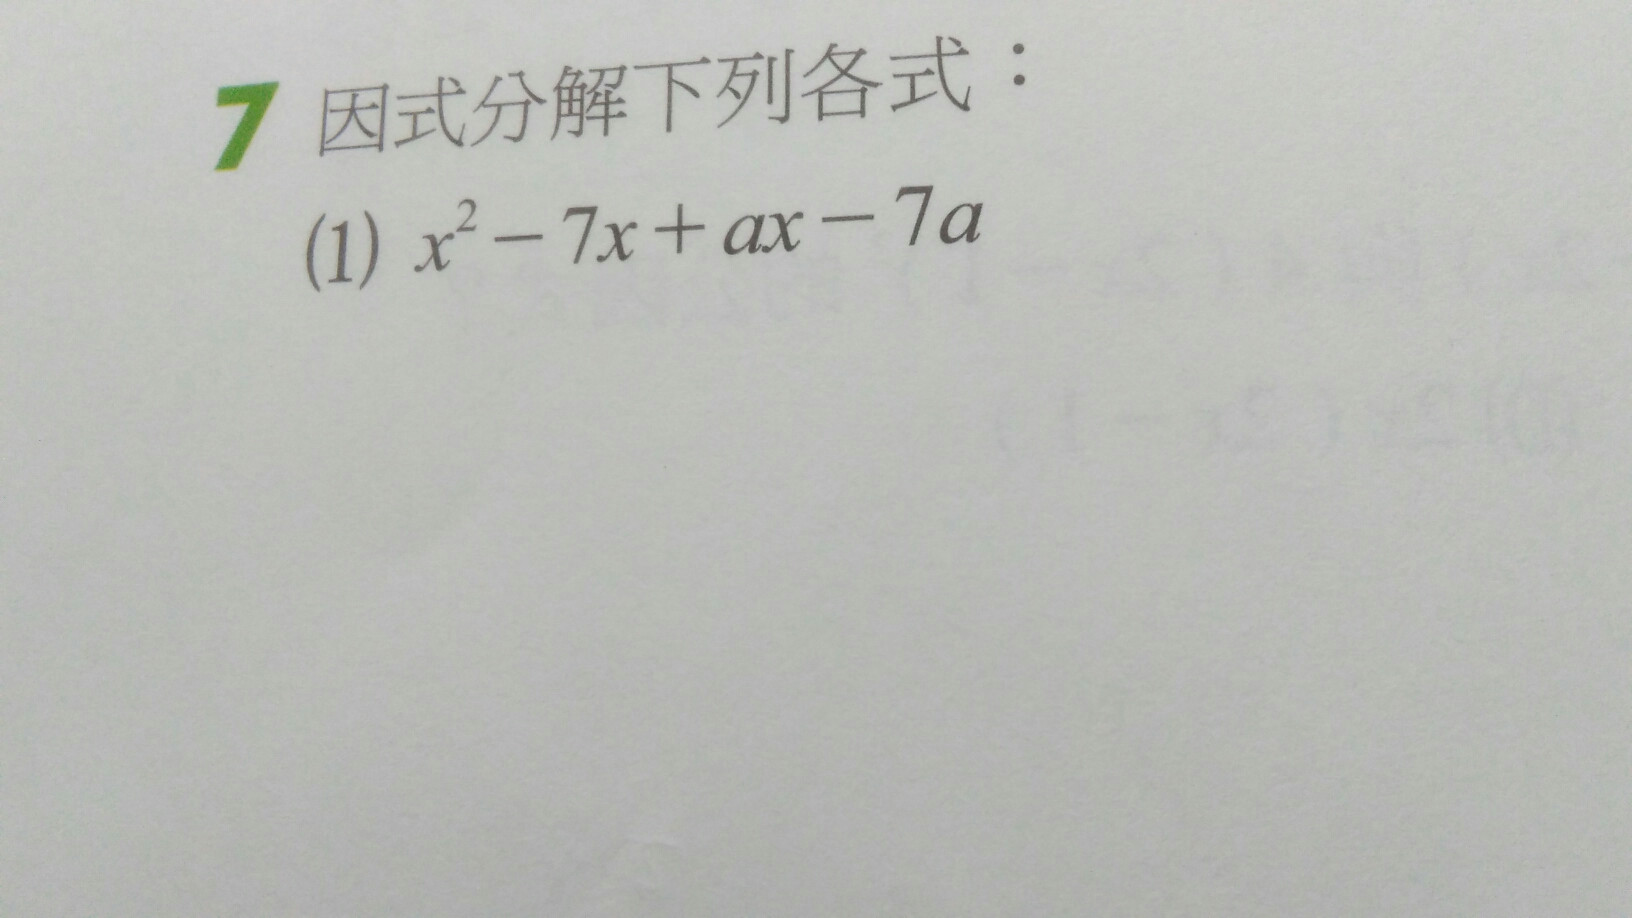 7 因式分解下列各式：
(1) x² − 7x + ax − 7a